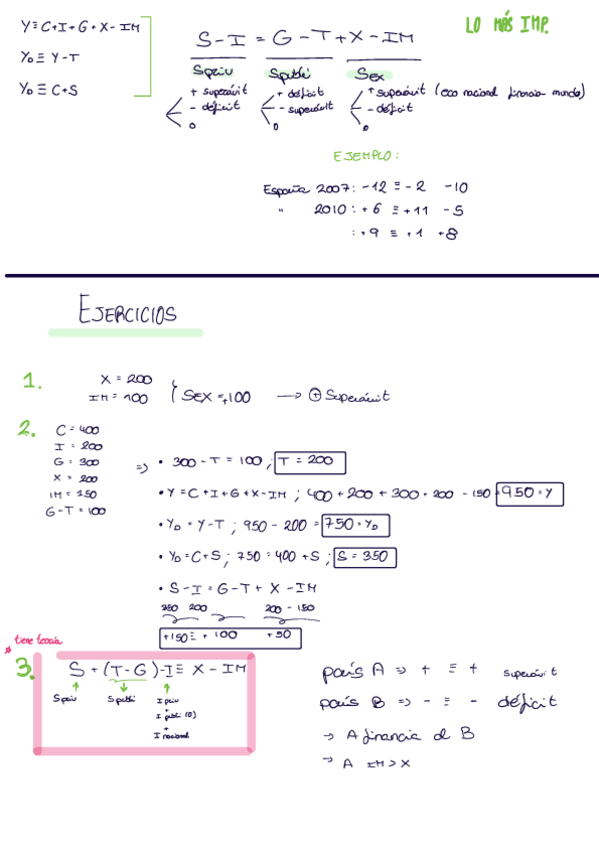 Y≡C+I+G+X-IM
Y_D ≡ Y-T
Y_D ≡ C+S
S-I = G-T+X-IM
LO MÁS IMP.
Spriv Spubli Sex
+ superávit + déficit + superávit (eco nacional financia mundo)
- déficit - superávit - déficit
0 0 0
EJEMPLO:
España 2007: -12 ≡ -2 -10
" 2010: +6 ≡ +11 -5
: +9 ≡ +1 +8
EJERCICIOS
1.
X = 200
IM = 100
SEX = +100 → ⊕ Superávit
2.
C = 400
I = 200
G = 300
X = 200
IM = 150
G-T = 100
⇒ • 300 - T = 100 ; T = 200
• Y = C+I+G+X-IM ; 400 + 200 + 300 + 200 - 150 = 950 = Y
• Y_D = Y-T ; 950 - 200 = 750 = Y_D
• Y_D = C+S ; 750 = 400 + S ; S = 350
• S-I = G-T + X-IM
350 200 200 - 150
+150 ≡ + 100 +50
* tiene teoría
3.
S + (T-G)-I ≡ X-IM
Spriv Spubli I priv
+
I publi (0)
+
I nacional
país A ⇒ + ≡ + superávit
país B ⇒ - ≡ - déficit
→ A financia al B
→ A IM > X